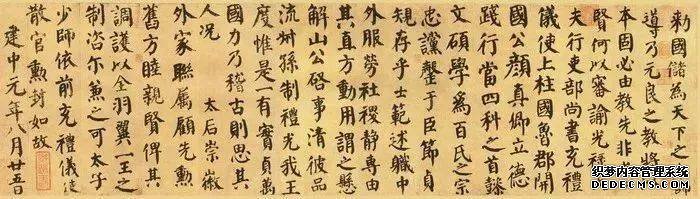 勅國儲為天下之
導乃元良之教將
本固必由教先非
賢何以審諭光
夫行吏部尚書充禮
儀使上柱國魯郡開
國公顏真卿立德
踐行當四科之首懿
文碩學為百氏之宗
忠讜罄于臣節貞
規存乎士範述職中
外服勞社稷靜專由
其直方動用謂之懸
解山公啓事清彼品
流叔孫制禮光我王
度惟是一有實貞萬
國力乃稽古則思其
人況 太后崇徽
外家聯属顧先勳
舊方睦親賢俾其
調護以全羽翼一王之
制咨尔兼之可太子
少師依前充禮儀使
散官勳封如故
建中元年八月廿五日
织梦内容管理系统
DEDECMS.COM